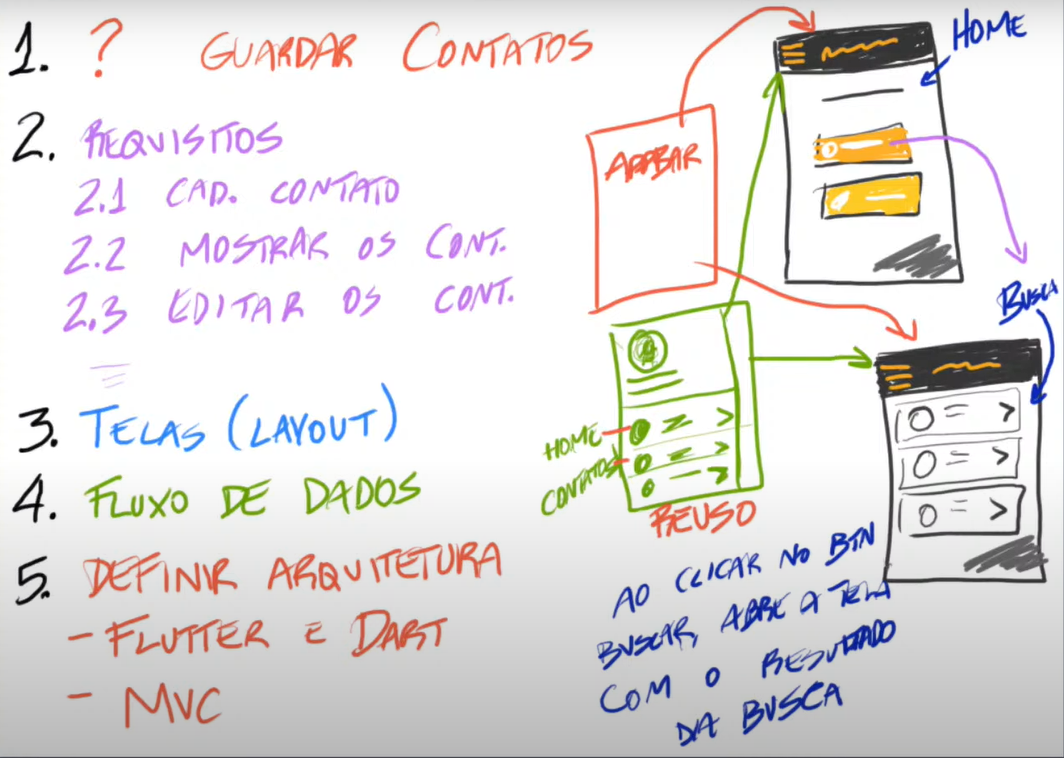 1. ? GUARDAR CONTATOS
2. REQUISITOS
2.1 CAD. CONTATO
2.2 MOSTRAR OS CONT.
2.3 EDITAR OS CONT.
3. TELAS (LAYOUT)
4. FLUXO DE DADOS
5. DEFINIR ARQUITETURA
- FLUTTER E DART
- MVC
HOME
APPBAR
BUSCA
HOME
CONTATOS
REUSO
AO CLICAR NO BTN
BUSCAR, ABRE A TELA
COM O RESULTADO
DA BUSCA